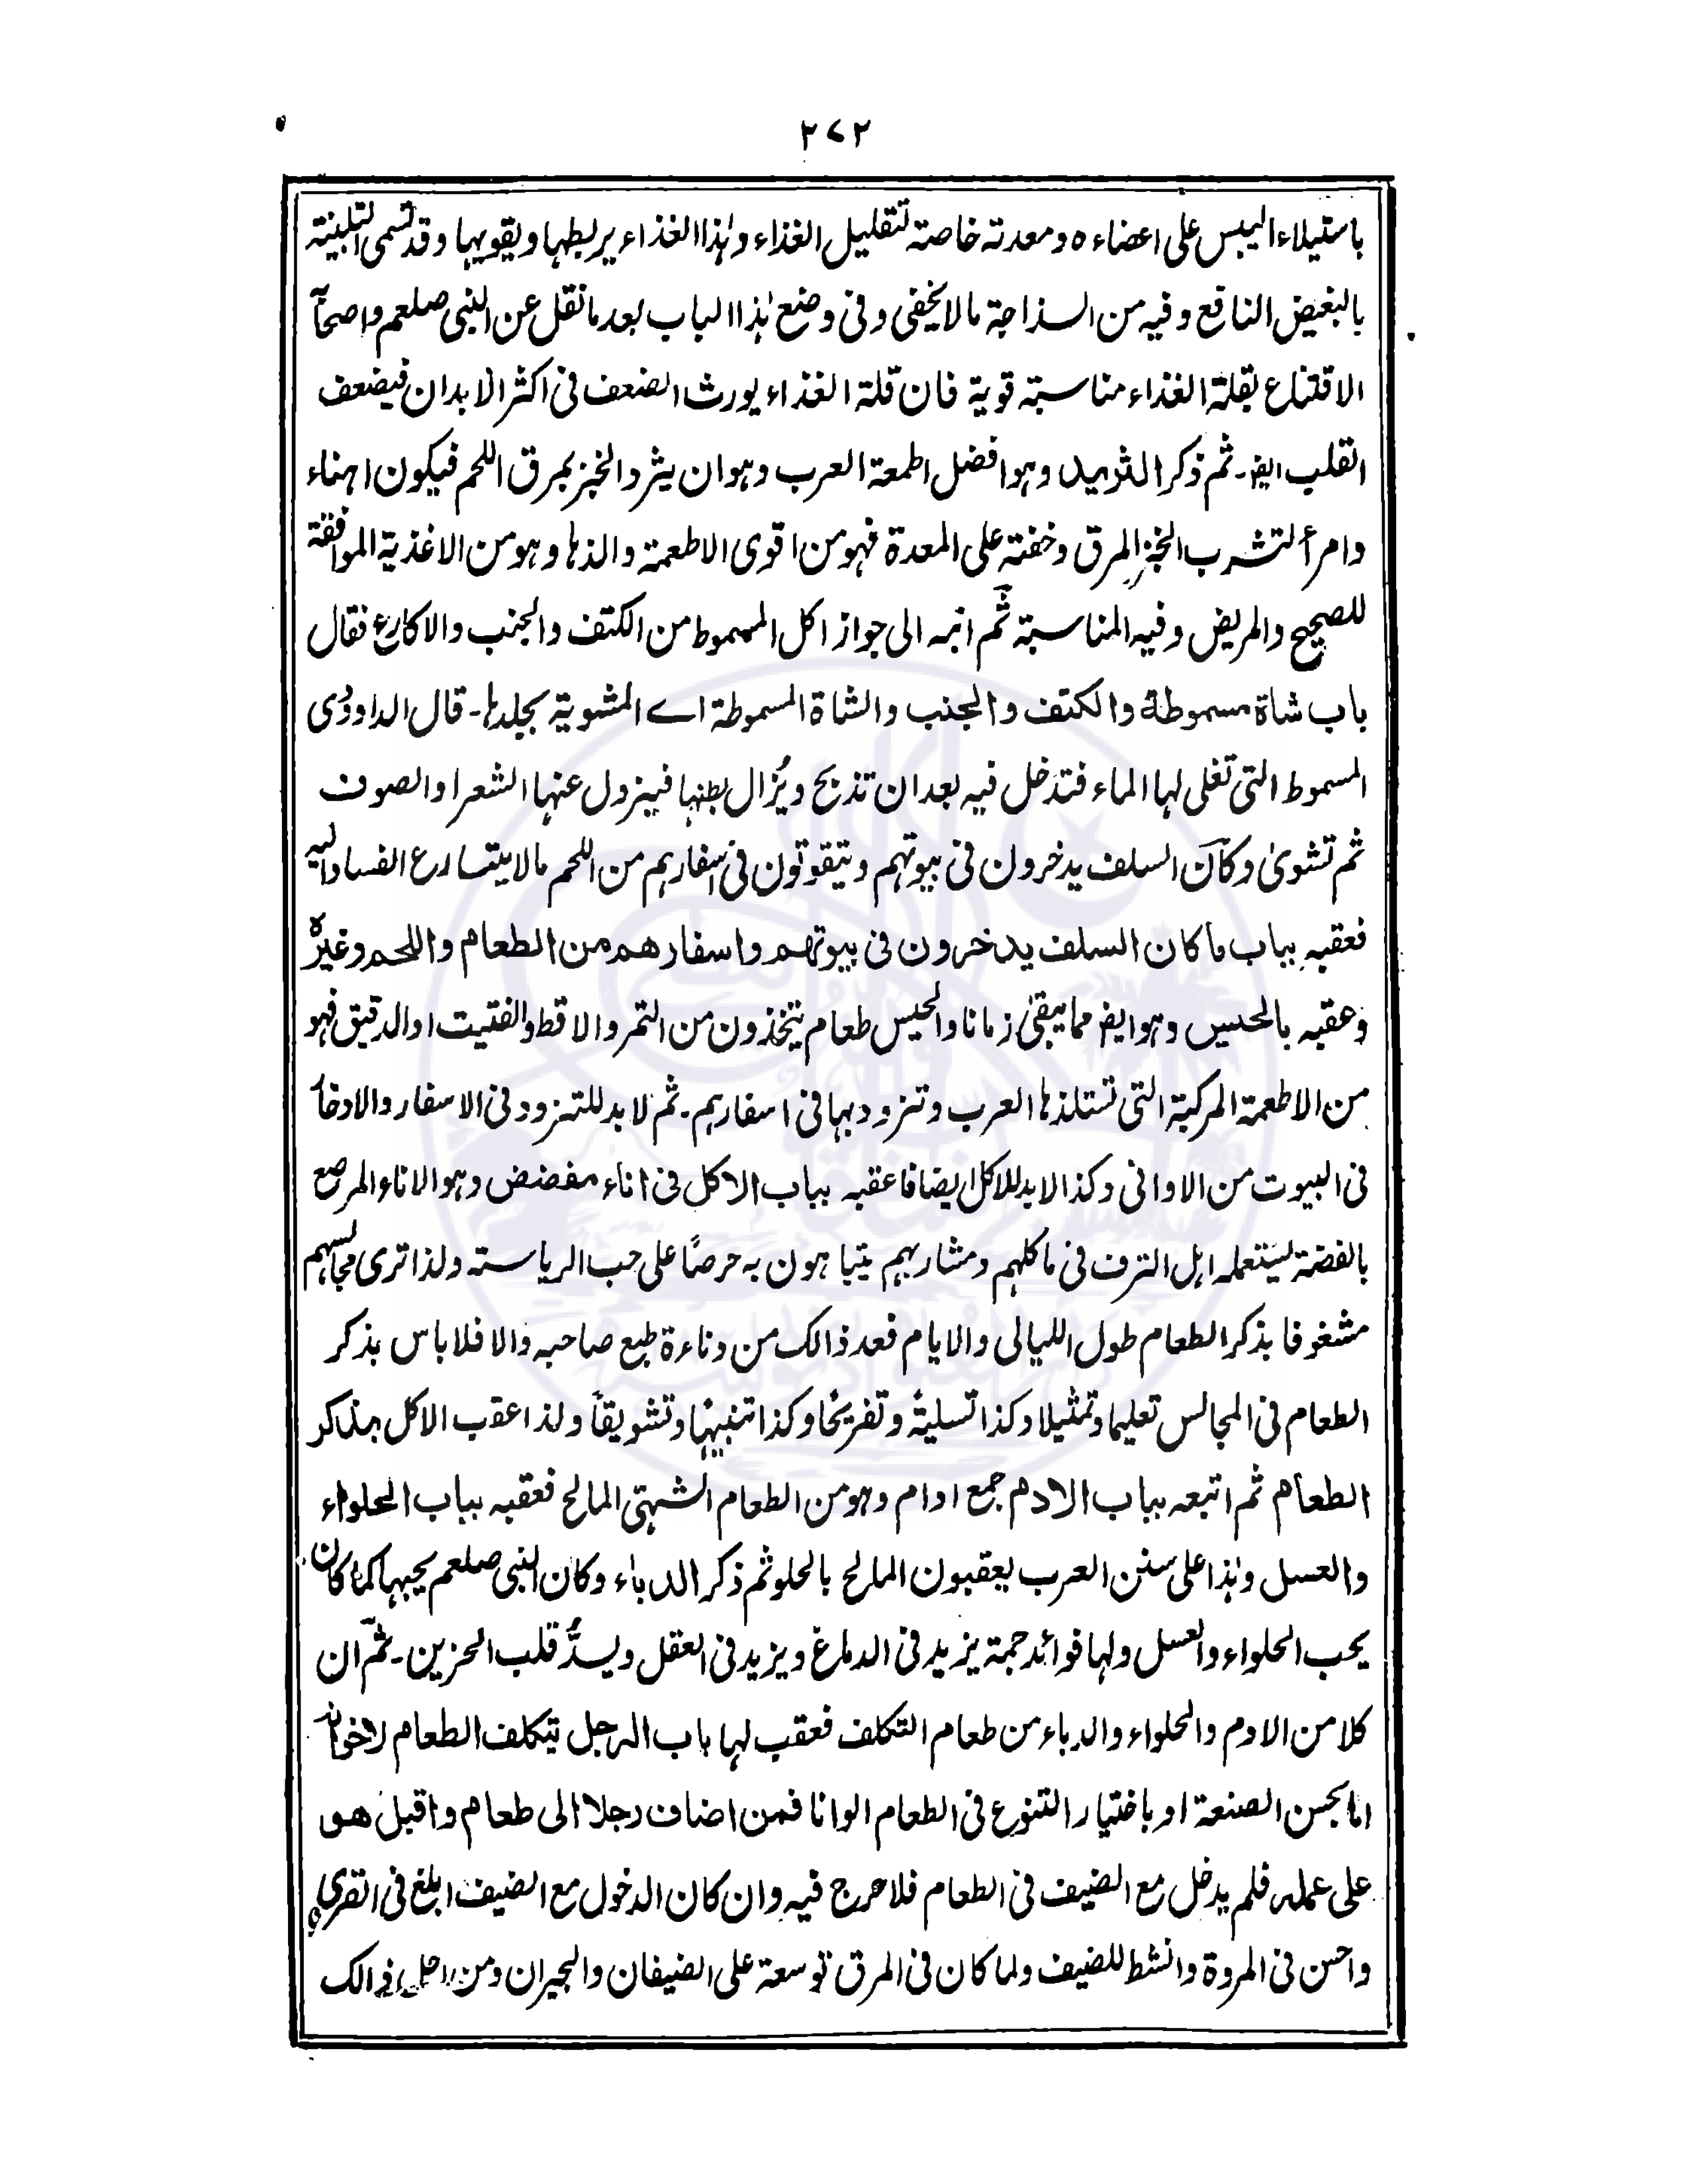 ٢٧٢
باستيلاء اليبس على اعضاءه ومعدته خاصة لتقليل الغذاء وهذا الغذاء يربطها ويقويها وقد تسمى التلبينة
بالبغيض النافع وفيه من السذاجة مالا يخفى وفى وضع هذا الباب بعد ما نقل عن النبى صلعم واصحاً
الاقتناع بقلة الغذاء مناسبة قوية فان قلة الغذاء يورث الضعف فى اكثر الابدان فيضعف
القلب ايضـ۔ ثم ذكر الثريد وهو افضل اطمعة العرب وهو ان يثرد الخبز بمرق اللحم فيكون اهناء
وامرأ لتشرب الخبز المرق وخفته على المعدة فهو من اقوى الاطعمة والذها وهو من الاغذية الموافقة
للصحيح والمريض وفيه المناسبة ثم انبه الى جواز اكل المسموط من الكتف والجنب والاكارع فقال
باب شاة مسموطة والكتف والجنب والشاة المسموطة اے المشوية بجلدها۔ قال الداودى
المسموط التى تغلى لها الماء فتدخل فيه بعد ان تذبح ويُزال بطنها فيزول عنها الشعر او الصوف
ثم تشوىٰ وكان السلف يدخرون فى بيوتهم ويتقوتون فى اسفارهم من اللحم مالا يتسارع الفساد اليه
فعقبه بباب ما كان السلف يدخرون فى بيوتهم واسفارهم من الطعام واللحم وغيره
وعقبه بالحيس وهو ايضـ مما يبقىٰ زمانا والحيس طعام يتخذون من التمر والاقط والفتيت او الدقيق فهو
من الاطعمة المركبة التى تستلذها العرب وتزود بها فى اسفارهم۔ ثم لابد للتزود فى الاسفار والادخا
فى البيوت من الاوانى وكذا لابد للاكل ايضا فاعقبه بباب الاكل فى اناء مفضض وهو الاناء المرصع
بالفضة ليستعمله اهل الترف فى ماكلهم ومشاربهم يتباهون به حرصًا على حب الرياسة ولذا ترى مجالسهم
مشغوفا بذكر الطعام طول الليالى والايام فعد ذالك من دناءة طبع صاحبه والا فلا باس بذكر
الطعام فى المجالس تعليما وتمثيلا وكذا تسليةً وتفريحًا وكذا تنبيهًا وتشويقاً ولذا عقب الاكل بذكر
الطعام ثم اتبعه بباب الادم جمع ادام وهو من الطعام الشهتى المالح فعقبه بباب الحلواء
والعسل وهذا على سنن العرب يعقبون المالح بالحلو ثم ذكر الدباء وكان النبى صلعم يحبها كما كان
يحب الحلواء والعسل ولها فوائد جمة يزيد فى الدماغ ويزيد فى العقل ويسدُّ قلب الحزين۔ ثم ان
كلا من الادم والحلواء والدباء من طعام التكلف فعقب لها باب الرجل يتكلف الطعام لاخوانه
اما بحسن الصنعة او باختيار التنوع فى الطعام الوانا فمن اضاف رجلا الى طعام واقبل هو
على عمله فلم يدخل مع الضيف فى الطعام فلا حرج فيه وان كان الدخول مع الضيف ابلغ فى القرى
واحسن فى المروة وانشط للضيف ولما كان فى المرق توسعة على الضيفان والجيران ومن اجل ذالك